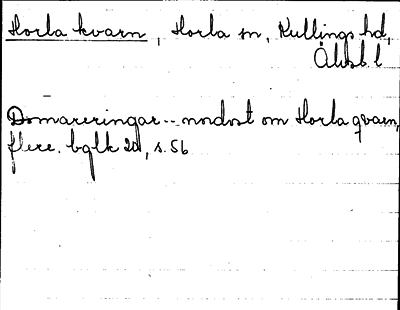 Horla kvarn, Horla sn, Kullings hd,
Älvsb. l
Domareringar .. nordost om Horla qvarn,
flere. bglk 20, s. 56